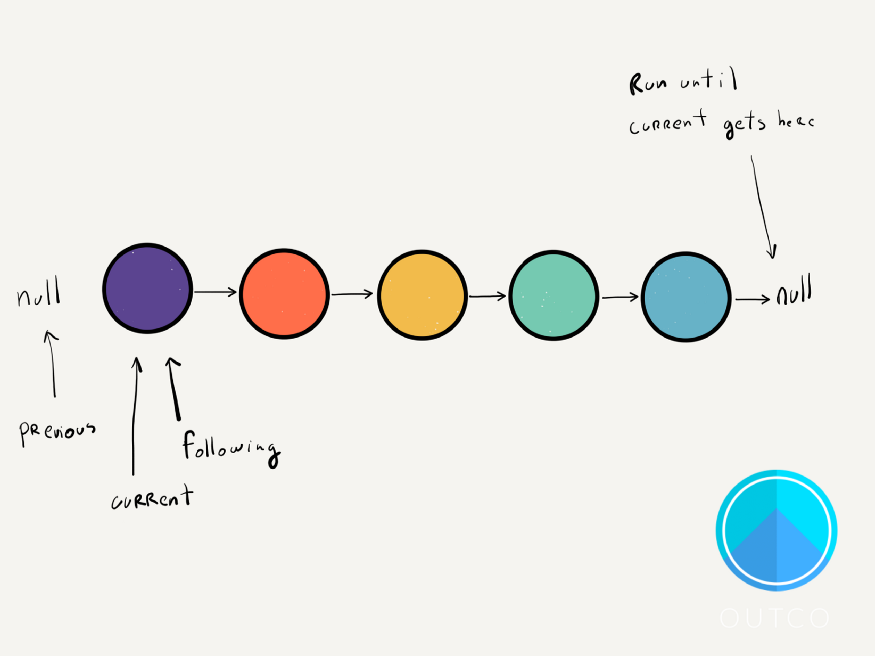 Run until
current gets here
null
null
previous
following
current
OUTCO